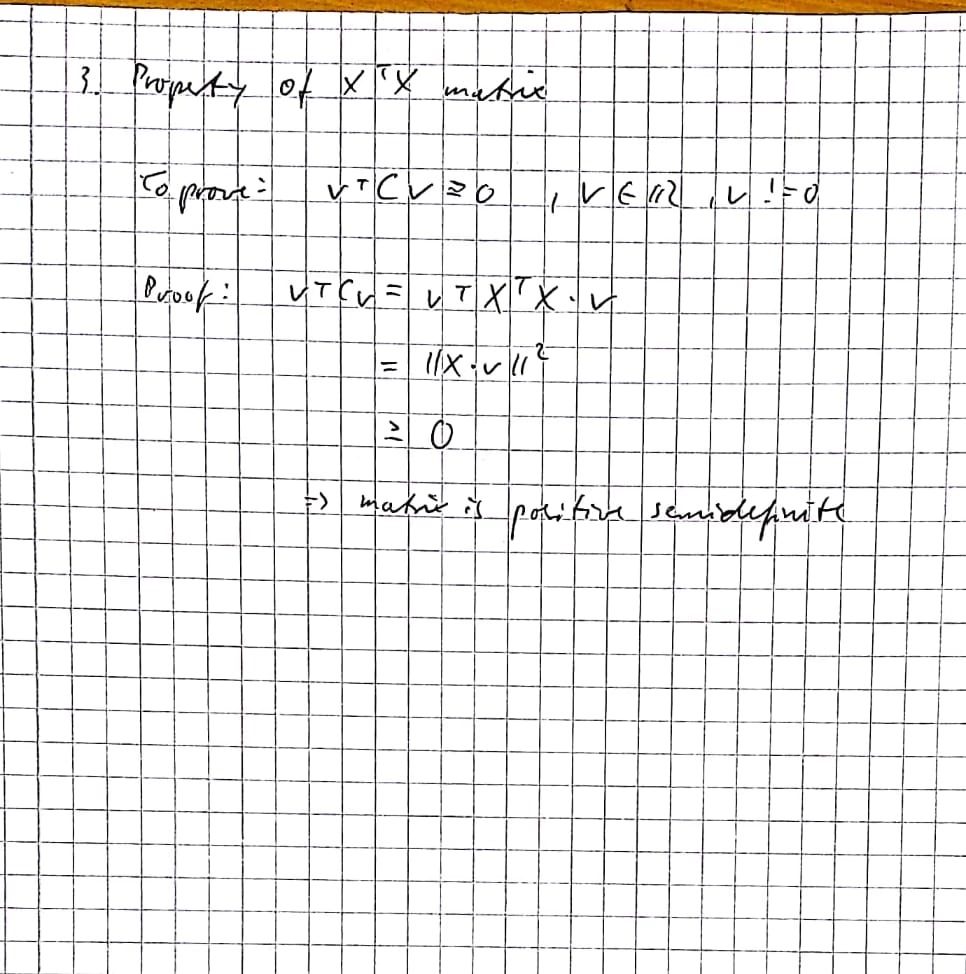 3. Property of X^T X matrix
To prove: v^T C v ≥ 0 , v ∈ ℝ , v != 0
Proof: v^T C v = v^T X^T X · v
= ||X · v||^2
≥ 0
=> matrix is positive semidefinite